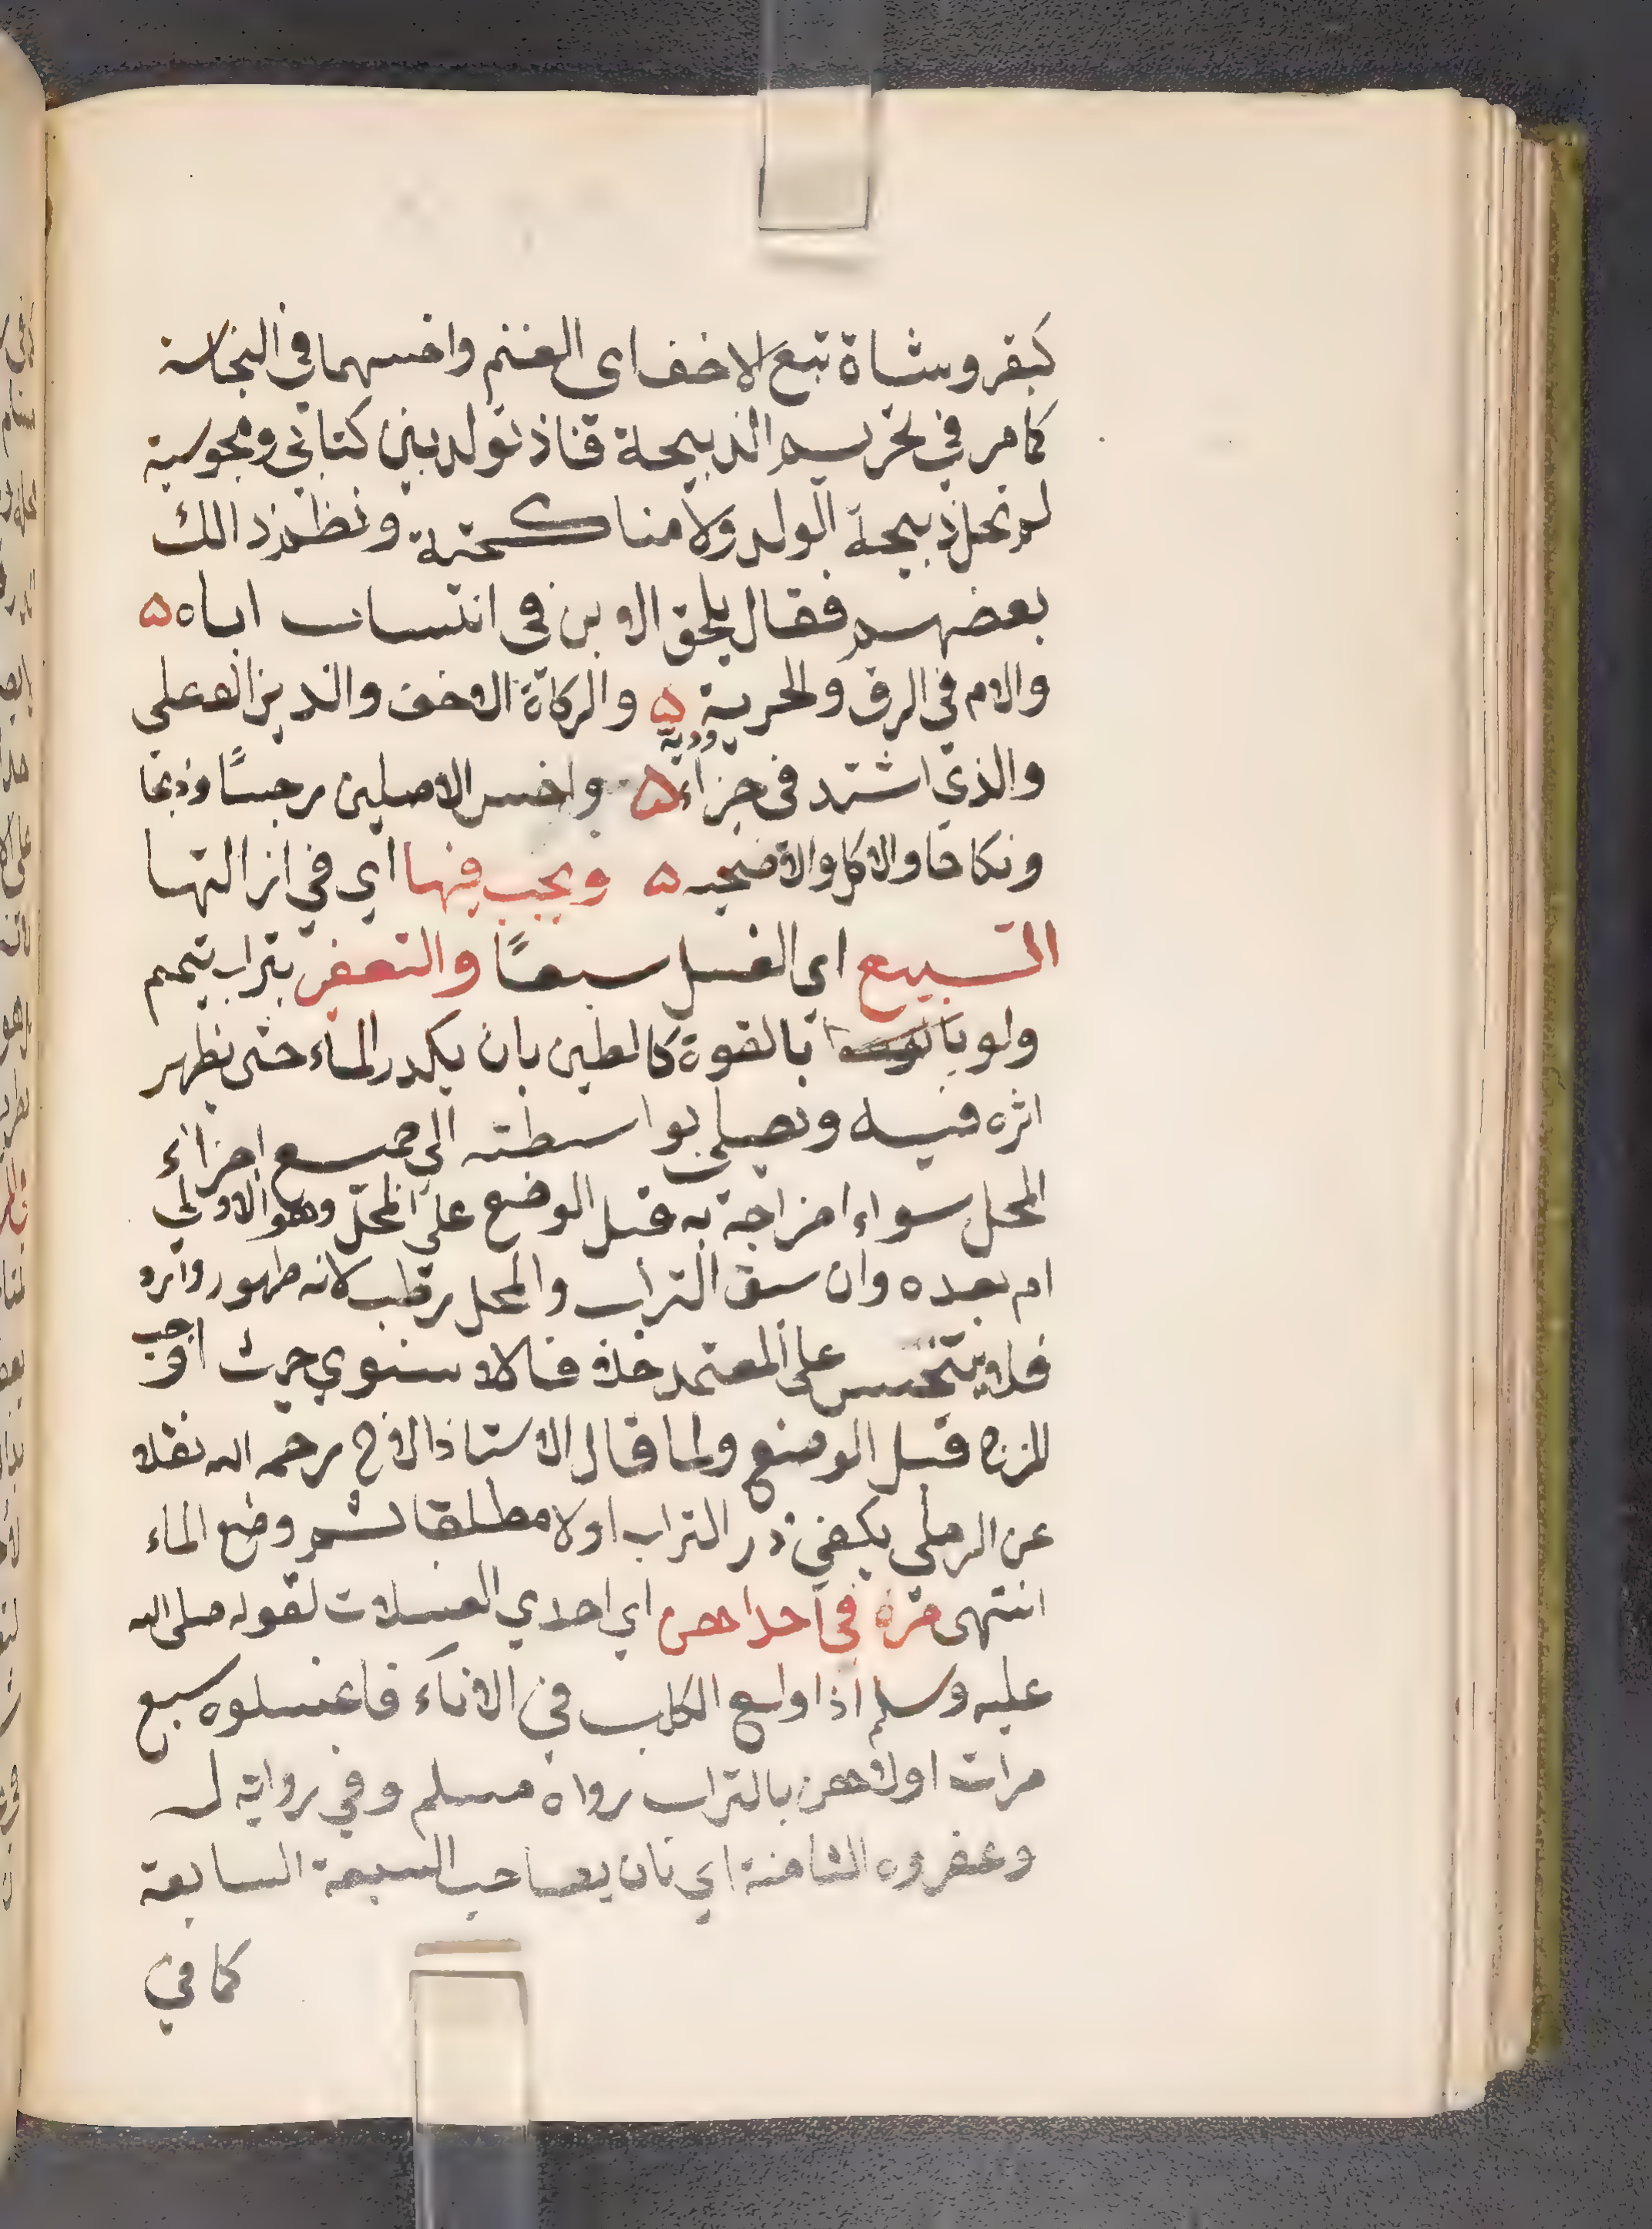 كبقر وشاة تبع الاخف اى الغنم واخسهما في النجاسة
كما مر في تحريم الذبيحة فاذ تولد بين كتابي ومجوسية
لم تحل ذبيحة الولد ولا مناكحته ونظم ذالك
بعضهم فقال يلحق الابن في انتساب اباه ۵
والام في الرق والحرية ۵ والزكاة الاخف والدين الاعلى
والذي اشتد في جزاء ودية ۵ واخس الاصلين رجسًا وذبحا
ونكاحا والاكل والاضحيه ۵ ويجب فيها اي في ازالتها
التسبيع اى الغسل سبعًا والتعفر بتراب تيمم
ولو بالقوة كالطين بان يكدر الماء حتى يظهر
اثره فيه ويصل بواسطته الى جميع اجزاء
المحل سواء امزاجة به قبل الوضع على المحل وهو الاولى
ام بعده وان سبق التراب والمحل رطب لانه طهور وارد
فلا يتنجس على المعتمد خلافا لاسنوي حيث اوجب
المزج قبل الوضع ولما قال الاستاذ رحمه الله نقلا
عن الرملي يكفي ذر التراب اولا مطلقا ثم وضع الماء
انتهى مرة في احداهن اي احدي الغسلات لقوله صلى الله
عليه وسلم اذا ولغ الكلب في الاناء فاغسلوه سبع
مرات اولاهن بالتراب رواه مسلم وفي رواية له
وعفروه الثامنة اي بان يصاحب السبعة السابعة
كما في